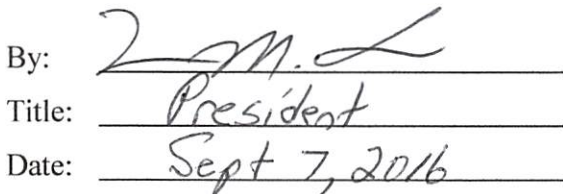 By: M.
Title: President
Date: Sept 7, 2016